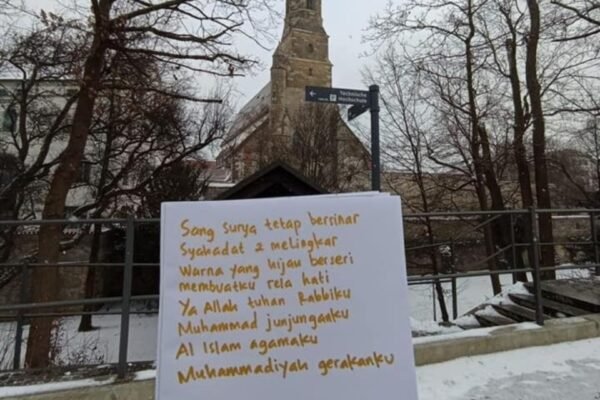 Technische
Hochschule
Sang surya tetap bersinar
Syahadat 2 melingkar
Warna yang hijau berseri
membuatku rela hati
Ya Allah tuhan Rabbiku
Muhammad junjunganku
Al Islam agamaku
Muhammadiyah gerakanku